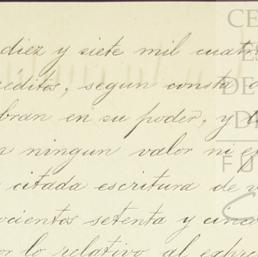 diez y siete mil cuatro
creditos, segun consta
obran en su poder, y
ningun valor ni
citada escritura de
cientos setenta y cinco
por lo relativo al
CE
ES
DE
DE
FU